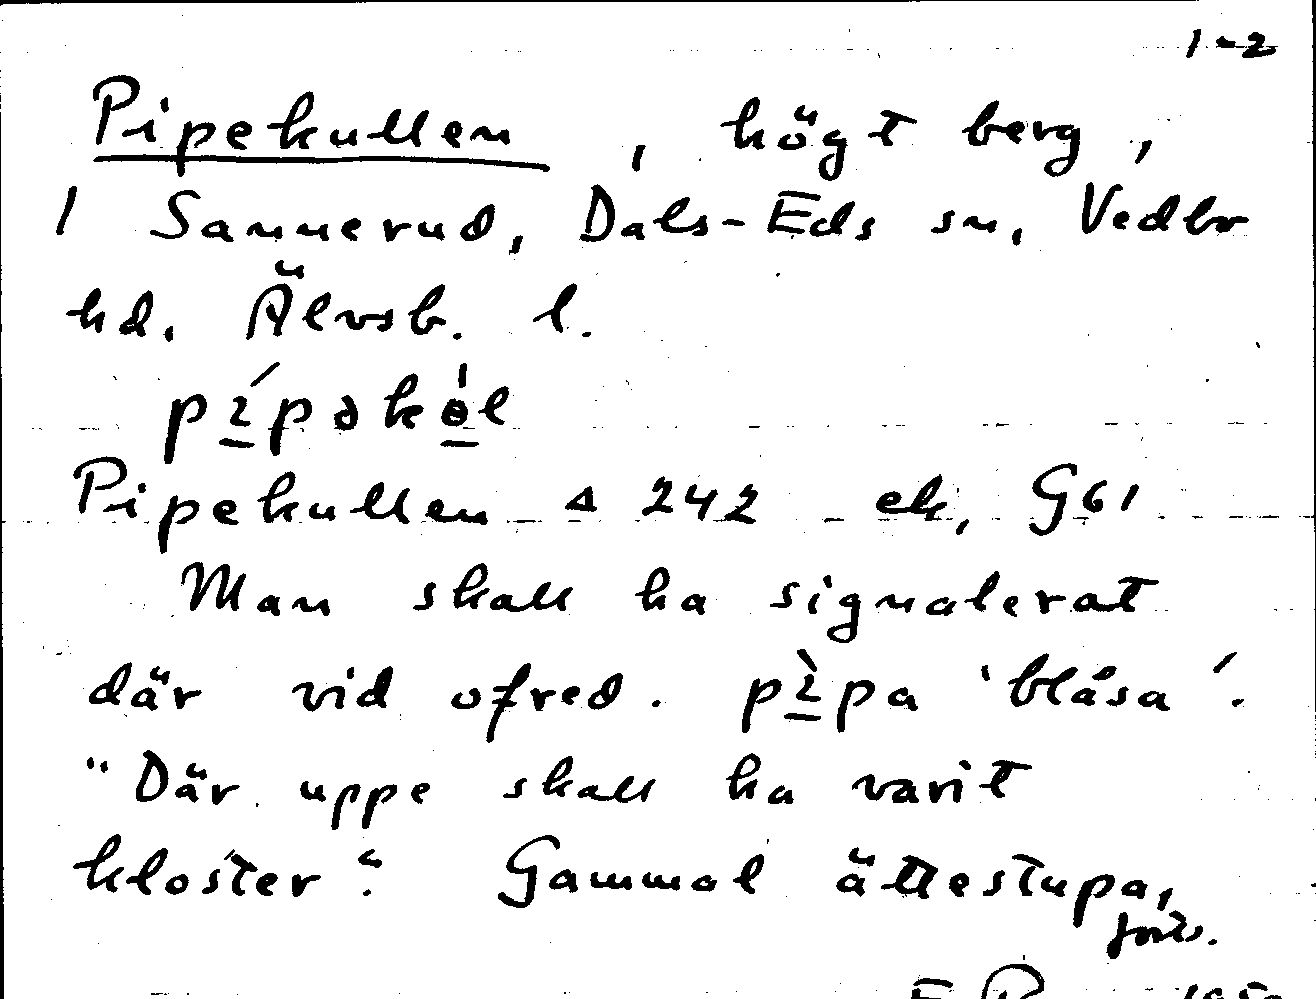 1-2
Pipekullen, högt berg,
1 Sannerud, Dals-Eds sn, Vedbo
hd. Älvsb. l.
pípəkɵ̍l
Pipekullen △ 242 ek, G61
Man skall ha signalerat
där vid ofred. pìpa 'blåsa'.
"Där uppe skall ha varit
kloster". Gammal ättestupa,
forts.